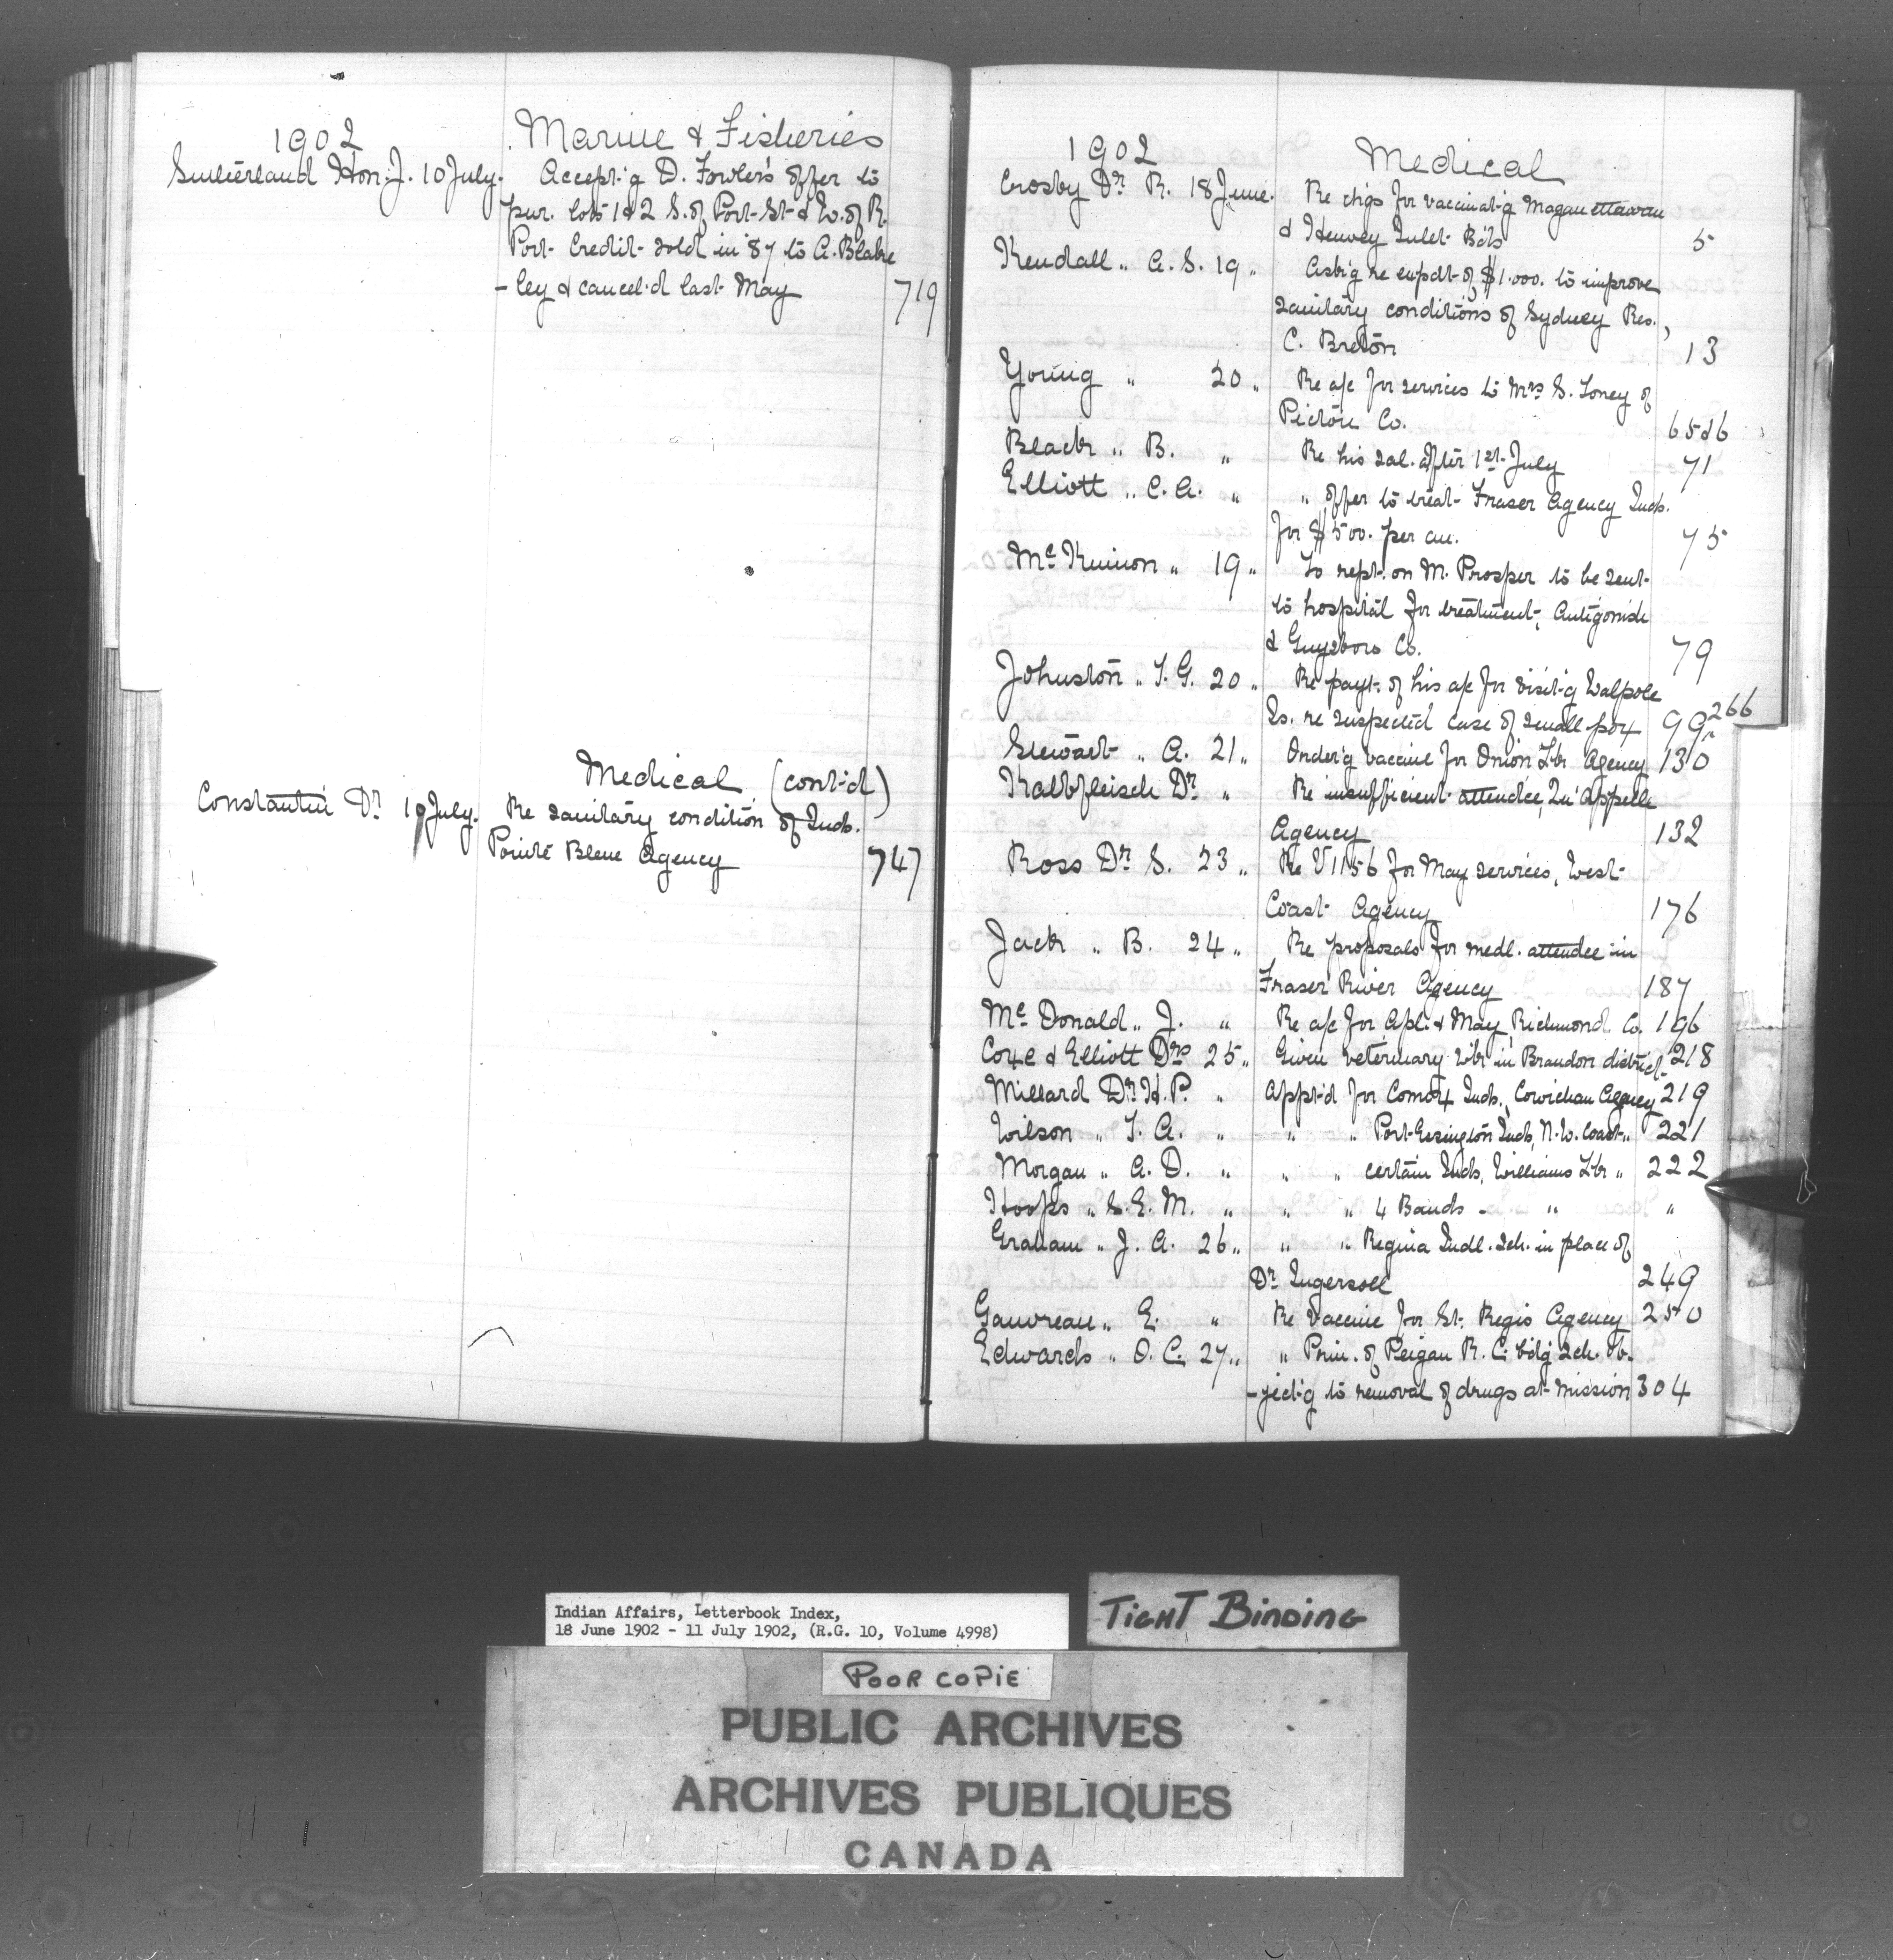 1902 Marine & Fisheries
Sutherland Hon. J. 10 July. Accept'g D. Fowler's offer to
pur. lots 1 & 2 S. of Port St & W. of R.
Port Credit sold in '87 to A. Blake
-ley & cancel'd last May 719
Medical (cont'd)
Constantin Dr 10 July. Re sanitary condition of Inds.
Pointe Bleue Agency 747
1902 Medical
Crosby Dr R. 18 June. Re chgs for vaccinat'g Maganettawan
& Henvey Inlet Bds 5
Kendall " A. S. 19 " Ask'g re expdt of $1.000. to improve
sanitary conditions of Sydney Res.,
C. Breton 13
Young " 20 " Re a/c for services to Mrs S. Toney of
Pictou Co. 65 & 6
Black " B. " Re his sal. after 1st July 71
Elliott " C. A. " " offer to treat Fraser Agency Inds.
for $500. per an. 75
Mc Kinnon " 19 " To rept. on M. Prosper to be sent
to hospital for treatment, Antigonish
& Guysboro Co. 79
Johnston " T. G. 20 " Re payt. of his a/c for visit'g Walpole
Is. re suspected case of small pox 99 266
Stewart " A. 21 " Order'g vaccine for Onion Lk Agency 130
Kalbfleisch Dr " Re insufficient attendce, Qu'Appelle
Agency 132
Ross Dr S. 23 " Re V1156 for May services, West
Coast Agency 176
Jack " B. 24 " Re proposals for medl. attendce in
Fraser River Agency 187
Mc Donald " J. " Re a/c for Apl. & May, Richmond Co. 196
Coxe & Elliott Drs 25 " Given veterinary wk in Brandon district 218
Millard Dr H. P. " Appt'd for Comox Inds., Cowichan Agency 219
Wilson " T. A. " " " Port Essington Inds, N. W. Coast " 221
Morgan " A. D. " " " certain Inds, Williams Lk " 222
Hoops " S. E. M. " " " 4 Bands - " "
Graham " J. A. 26 " " " Regina Indl. Sch. in place of
Dr Ingersoll 249
Gauvreau " E. " Re vaccine for St. Regis Agency 250
Edwards " O. C. 27 " " Prin. of Peigan R. C. bdg sch. ob-
-ject'g to removal of drugs at mission 304
Indian Affairs, Letterbook Index,
18 June 1902 - 11 July 1902, (R.G. 10, Volume 4998)
TIGHT BINDING
POOR COPIE
PUBLIC ARCHIVES
ARCHIVES PUBLIQUES
CANADA